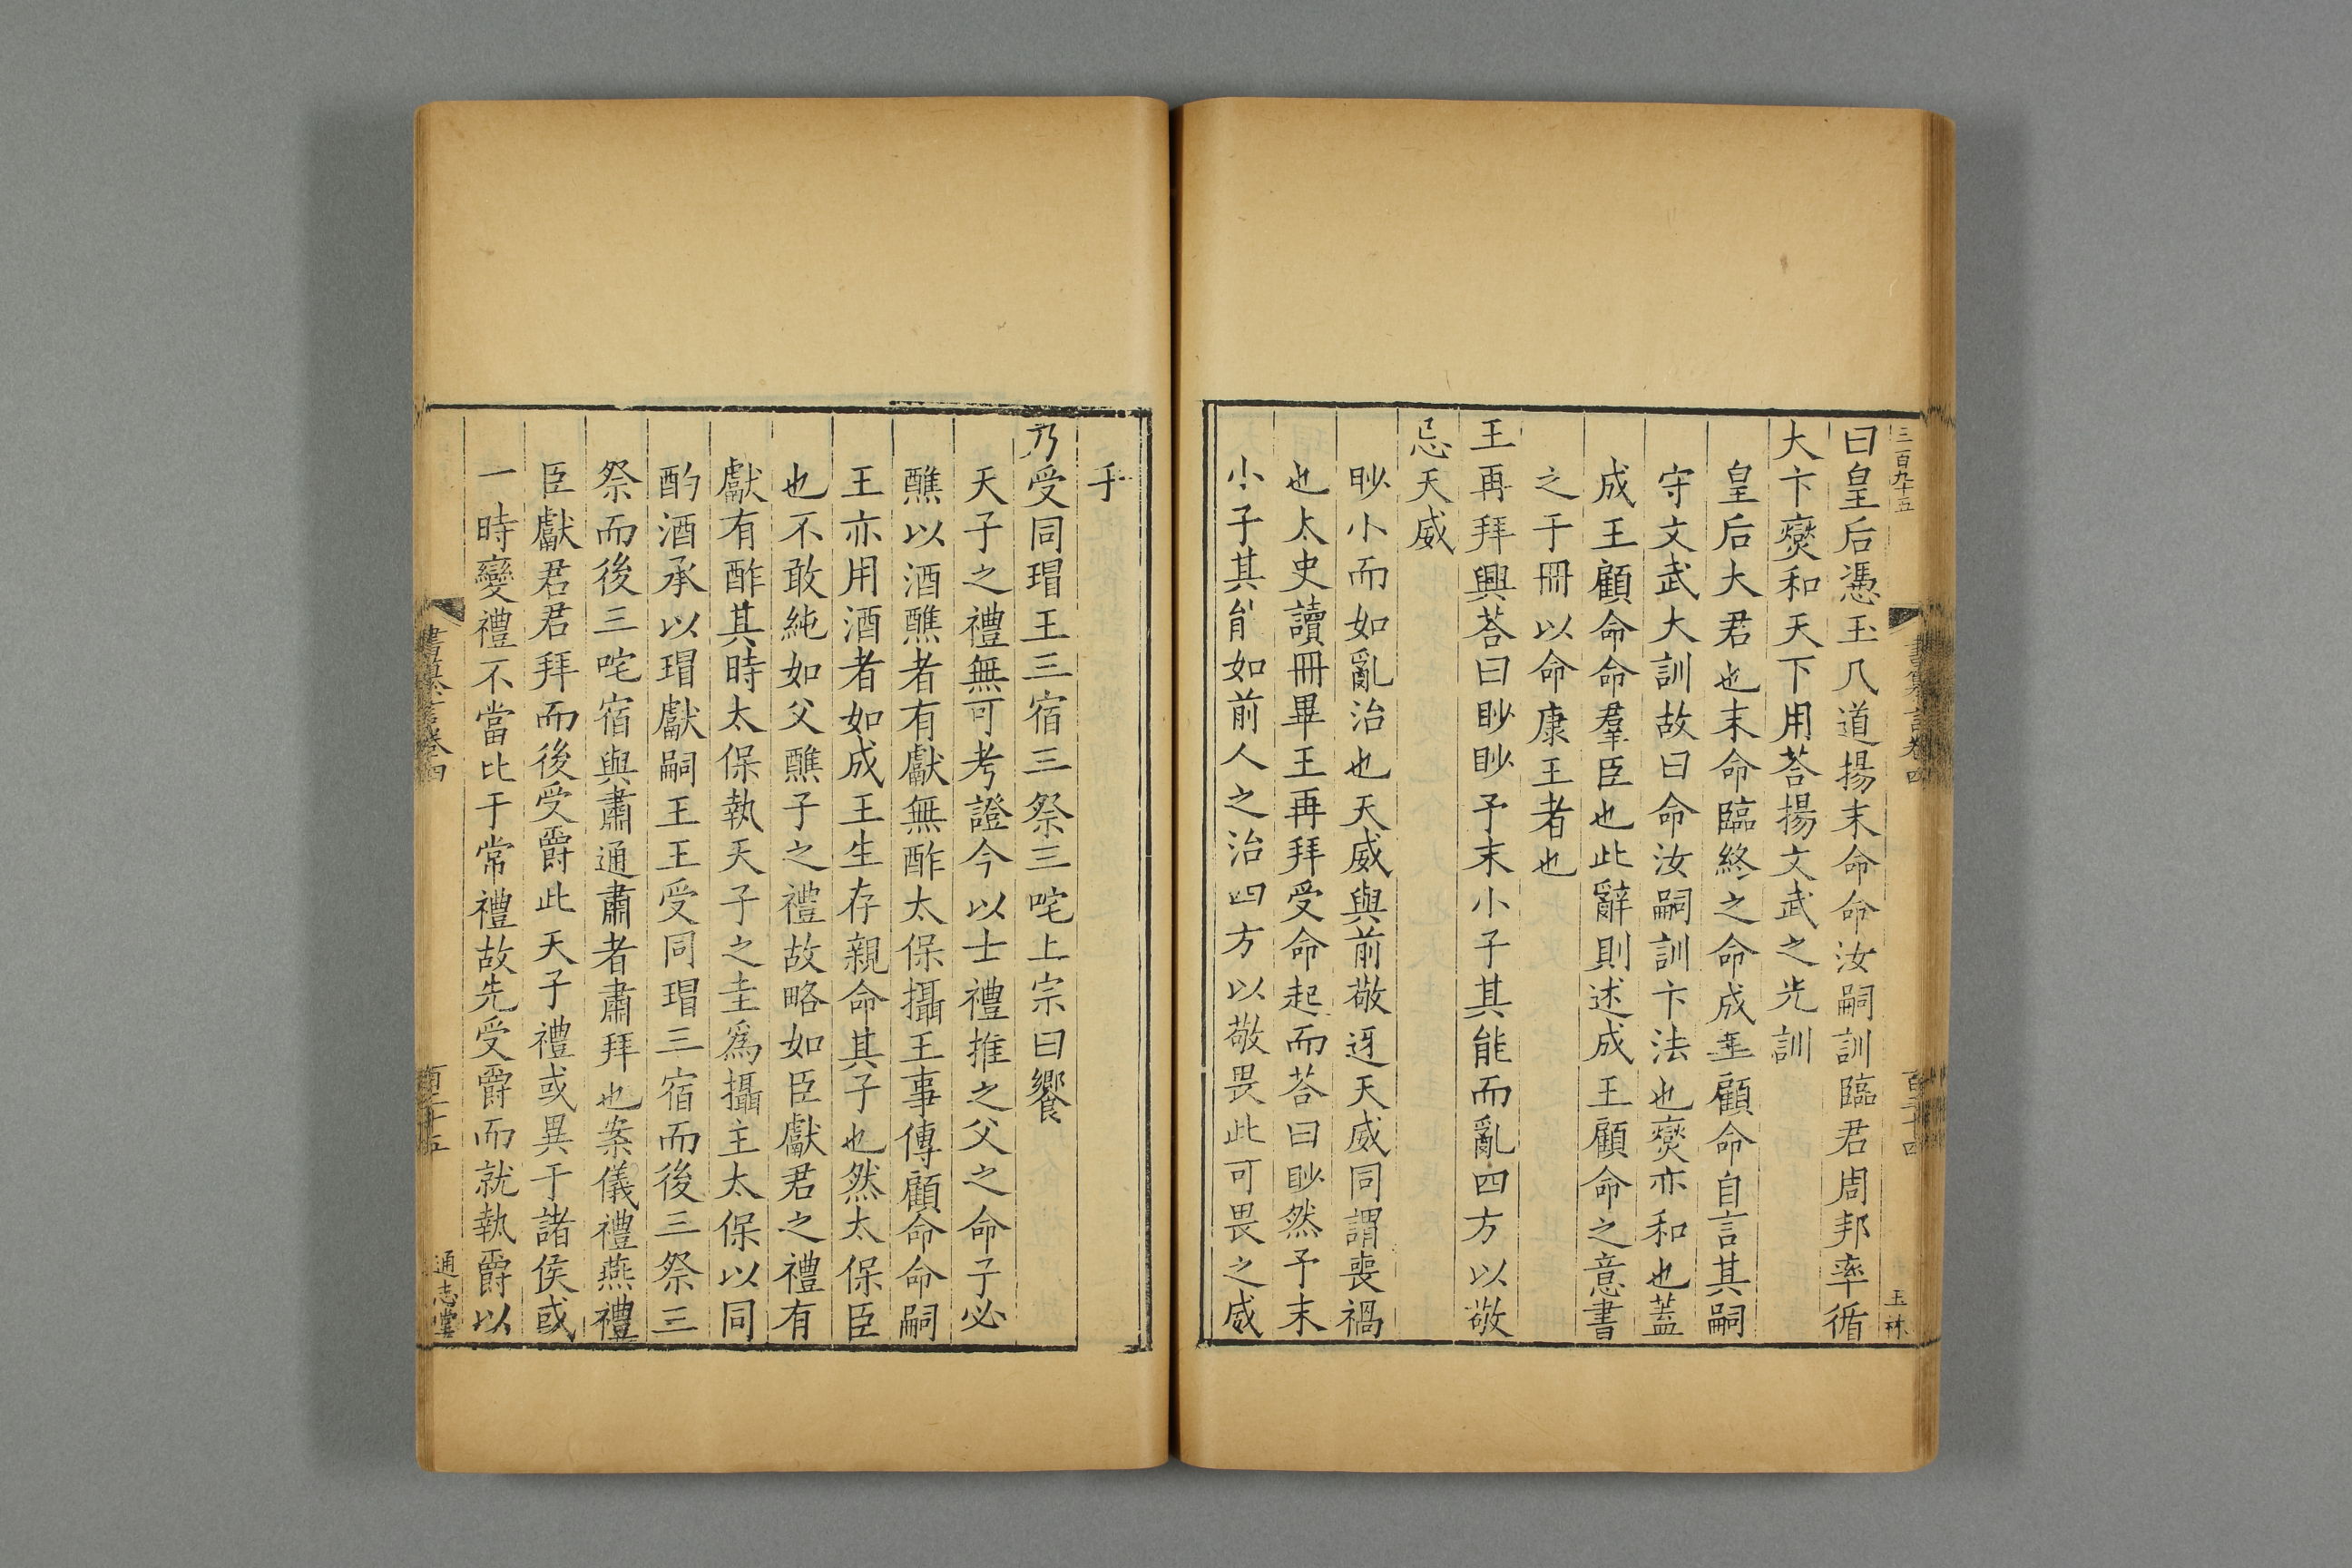 三百九十五
玉林
曰皇后憑玉几道揚末命命汝嗣訓臨君周邦率循
大卞燮和天下用荅揚文武之光訓
皇后大君也末命臨終之命成王顧命自言其嗣
守文武大訓故曰命汝嗣訓卞法也燮亦和也蓋
成王顧命命羣臣也此辭則述成王顧命之意書
之于冊以命康王者也
王再拜興荅曰眇眇予末小子其能而亂四方以敬
忌天威
眇小而如亂治也天威與前敬迓天威同謂喪禍
也太史讀冊畢王再拜受命起而荅曰眇然予末
小子其能如前人之治四方以敬畏此可畏之威
乎
乃受同瑁王三宿三祭三咤上宗曰饗
天子之禮無可考證今以士禮推之父之命子必
醮以酒醮者有獻無酢太保攝王事傳顧命命嗣
王亦用酒者如成王生存親命其子也然太保臣
也不敢純如父醮子之禮故略如臣獻君之禮有
獻有酢其時太保執天子之圭爲攝主太保以同
酌酒承以瑁獻嗣王王受同瑁三宿而後三祭三
祭而後三咤宿與肅通肅者肅拜也案儀禮燕禮
臣獻君君拜而後受爵此天子禮或異于諸侯或
一時變禮不當比于常禮故先受爵而就執爵以
書纂言卷四
百二十五
通志堂